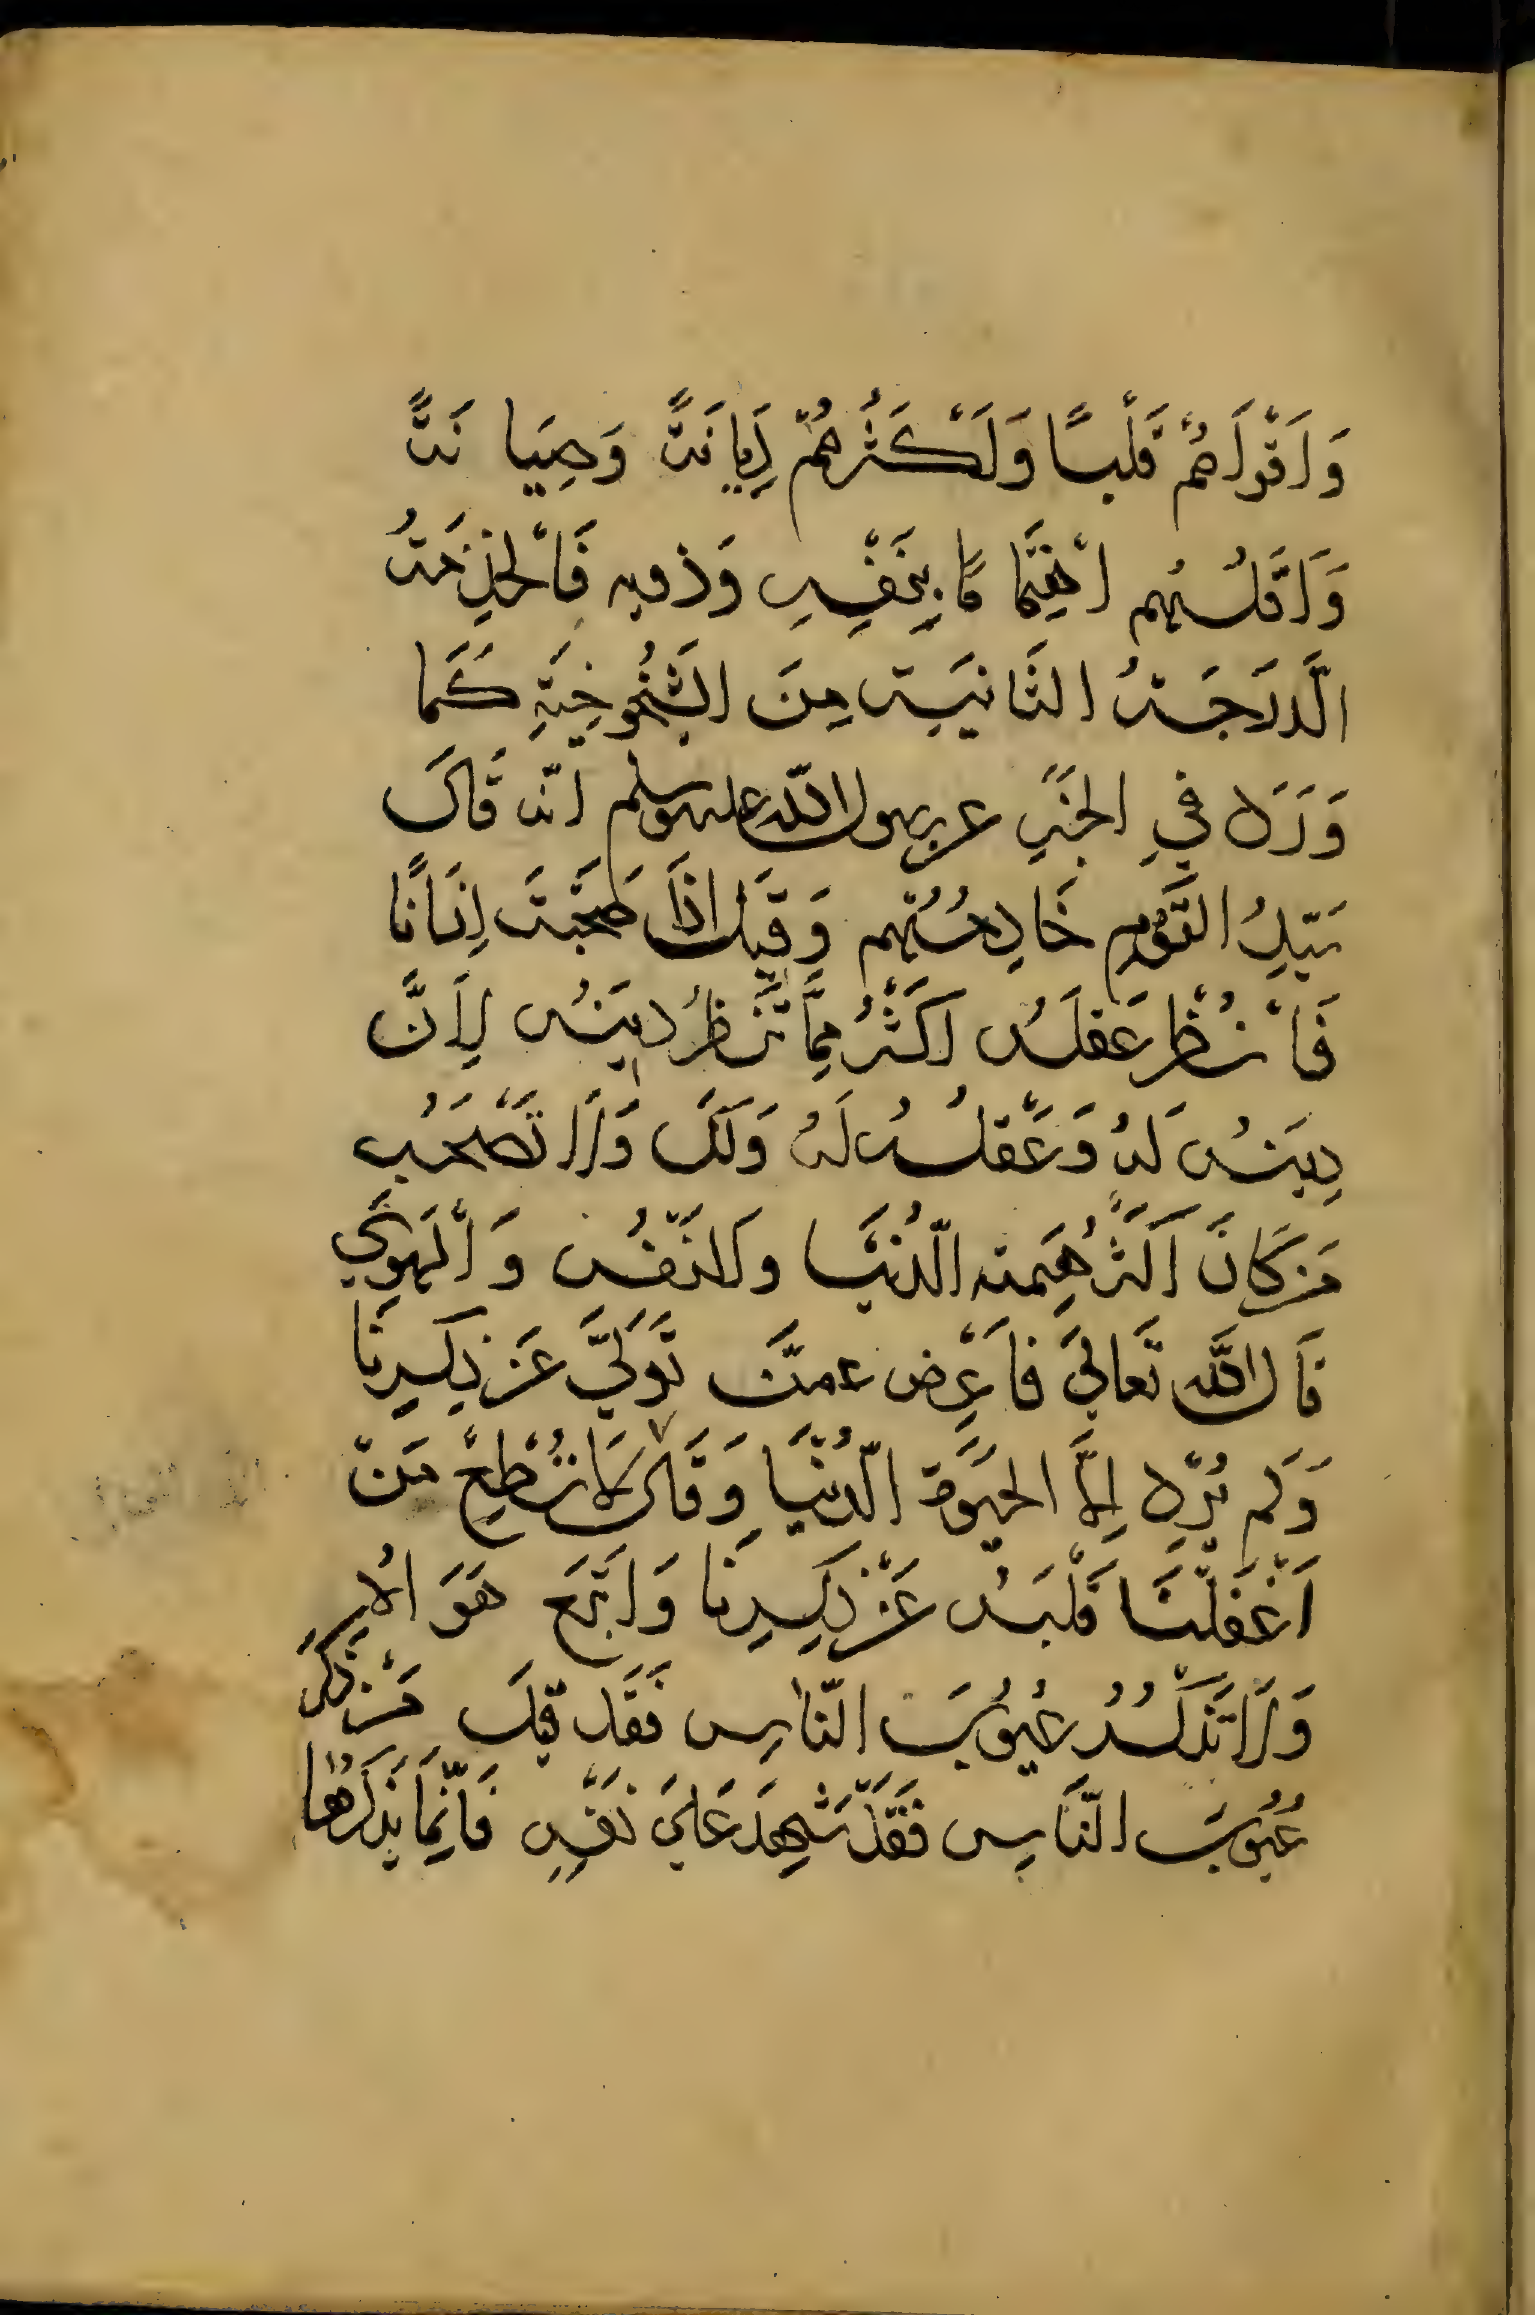 وَاَقْوَاهُمْ قَلْبًا وَاَكْثَرُهُمْ دِيَانَتًا وَصِيَانَتًا
وَاَقَلُّهُم اهْتِمَامًا بِنَفْسِهِ وَذويه فَالْخِذمَتُ
الَّدرَجَتُ الثَّانِيَت مِنَ الشَّيْخُوخِيَّةِ كَمَا
وَرَدَ فيِ الخَبَرِ عن رسول الله عليه وسلم اَنّه قَالَ
سَيّدُ القَوْمِ خَادِمُهُم وَقِيلَ اذَا صَحِبْتَ اِنسَانًا
فَانْظُر عَقلَهُ اَكْثَرُ مِمَّا تَنظُرُ ديِنَهُ لِاَنَّ
دِينَهُ لَهُ وَعَقْلُهُ لَهُ وَلَكَ وَلَا تَصْحَبْ
مَن كَانَ اَكْثَرُ هِمَته الّدُنْيَا والنَفْس وَالْهَوَي
قَال اللَّه تَعَاليَ فاَعْرِض عمنَّ تَوَلَيَّ عَن ذِكرِنَا
وَلَم يُرِد اِلاَّ الحَيَوةَ الّدُنْيَا وَقَالَ لاَ تُطِعْ مَنْ
اَغْفَلْنَا قَلْبَهُ عَنْ ذِكرِنَا وَاتَّبَع هَوَ الاُيه
وَلَا تَذكُرُ عُيُوبَ النّاسِ فَقَد قِيلَ مَنْ ذَكَرَ
عُيُوبَ النَّاسِ فَقَدْ شَهِدَ عَليَ نَفْسِهِ فَاِنّمَا يَذكَرُهَا